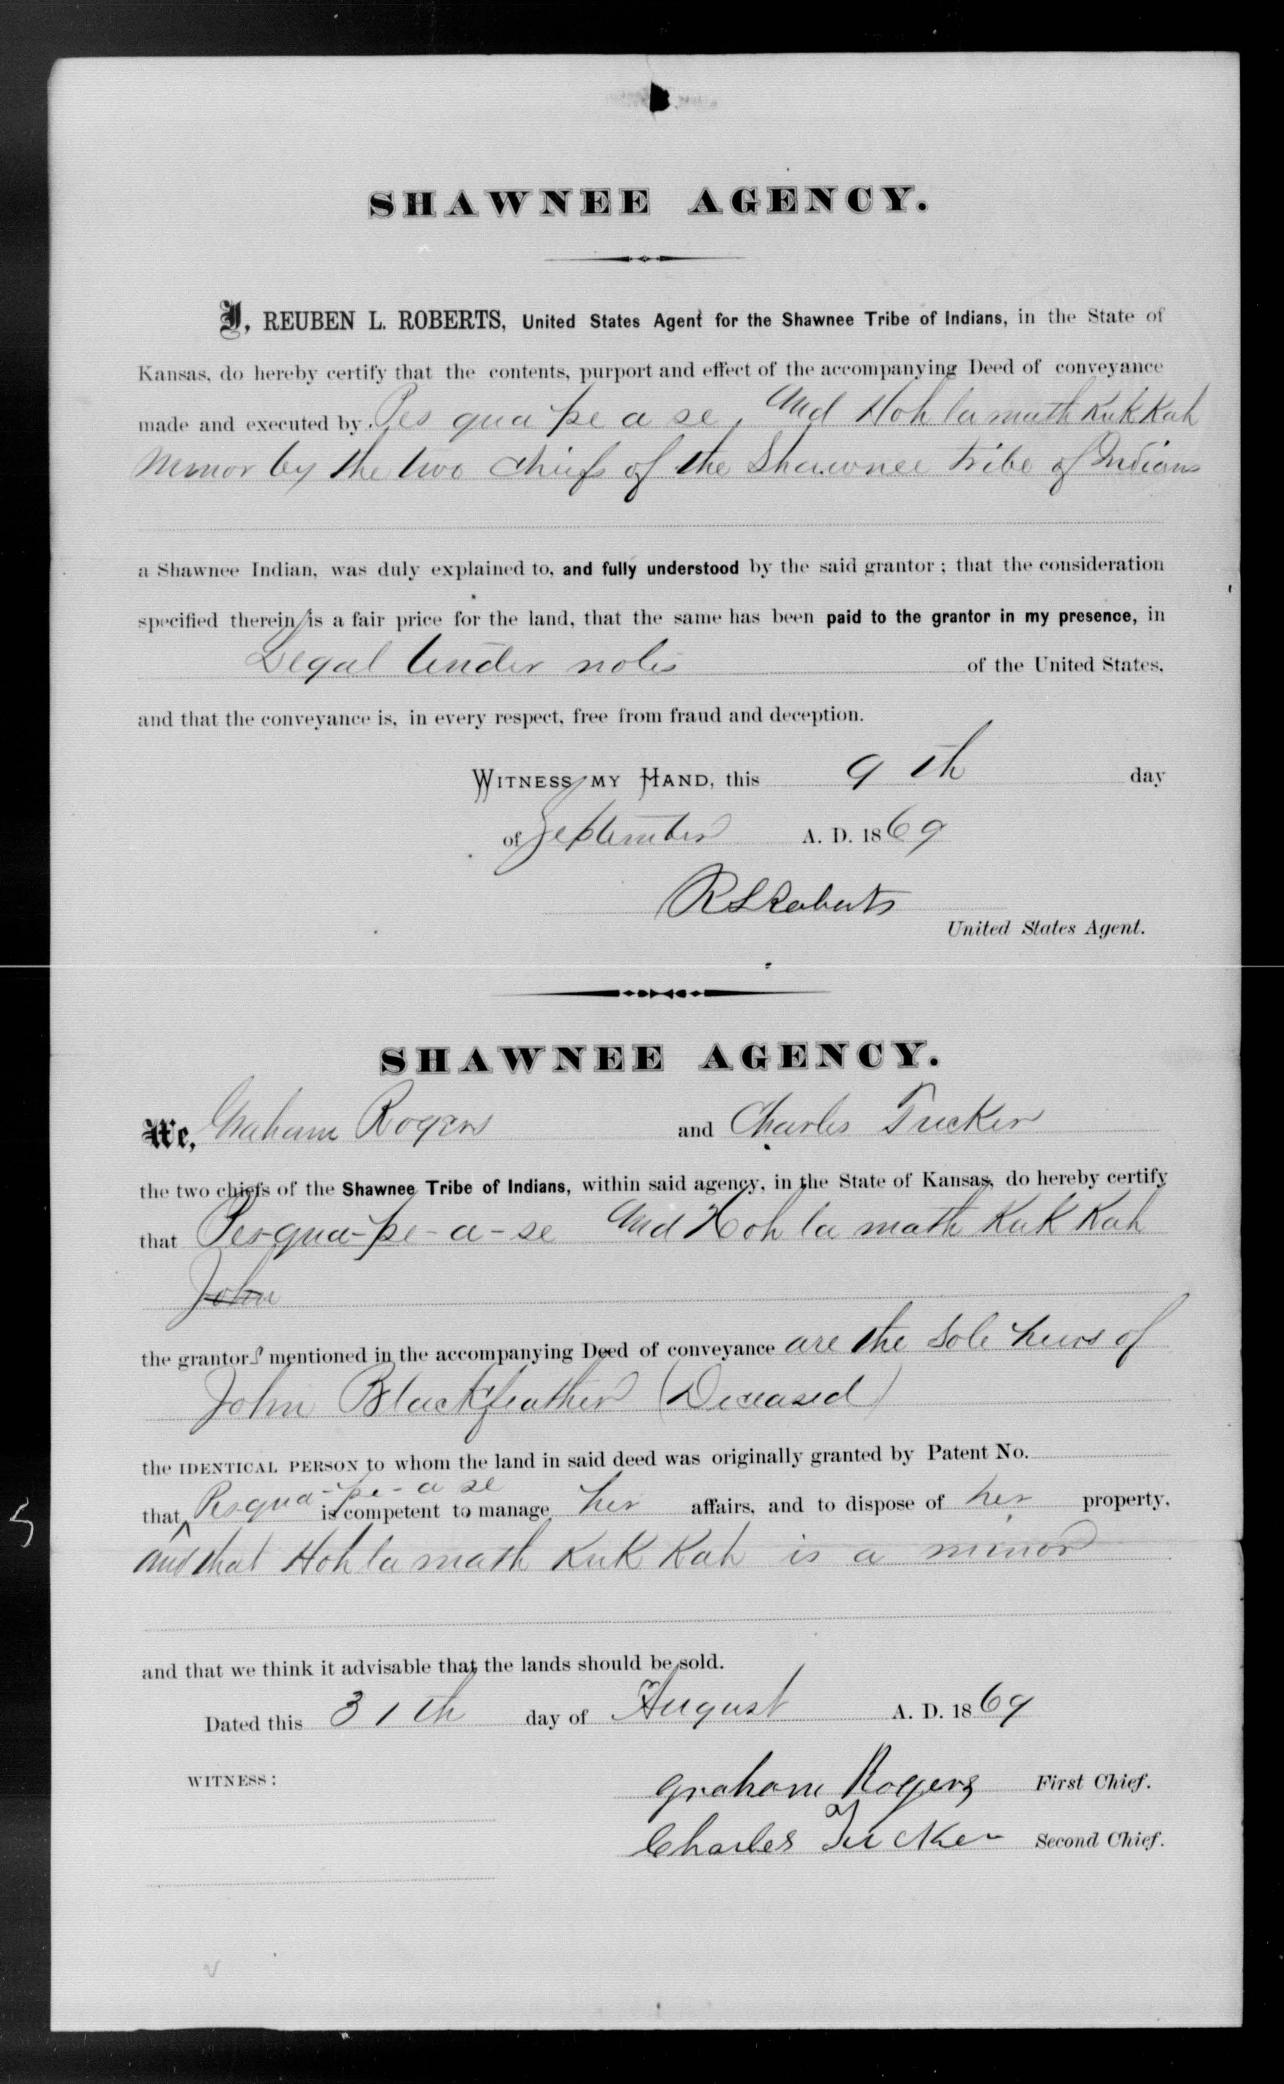 SHAWNEE AGENCY.
I, REUBEN L. ROBERTS, United States Agent for the Shawnee Tribe of Indians, in the State of
Kansas, do hereby certify that the contents, purport and effect of the accompanying Deed of conveyance
made and executed by Pes qua pe a se, and Hoh la math Kuk Kah
Minor by the two chiefs of the Shawnee tribe of Indians
a Shawnee Indian, was duly explained to, and fully understood by the said grantor; that the consideration
specified therein is a fair price for the land, that the same has been paid to the grantor in my presence, in
Legal tender notes of the United States,
and that the conveyance is, in every respect, free from fraud and deception.
WITNESS MY HAND, this 9th day
of September A. D. 1869
R L Roberts
United States Agent.
SHAWNEE AGENCY.
We, Graham Rogers and Charles Tucker
the two chiefs of the Shawnee Tribe of Indians, within said agency, in the State of Kansas, do hereby certify
that Pes-qua-pe-a-se and Hoh la math Kuk Kah
John
the grantors mentioned in the accompanying Deed of conveyance are the sole heirs of
John Blackfeather (Deceased)
the IDENTICAL PERSON to whom the land in said deed was originally granted by Patent No.
that Pesqua-pe-a se is competent to manage her affairs, and to dispose of her property,
and that Hoh la math Kuk Kah is a minor
and that we think it advisable that the lands should be sold.
Dated this 31th day of August A. D. 1869
WITNESS:
Graham Rogers First Chief.
Charles Tucker Second Chief.
5